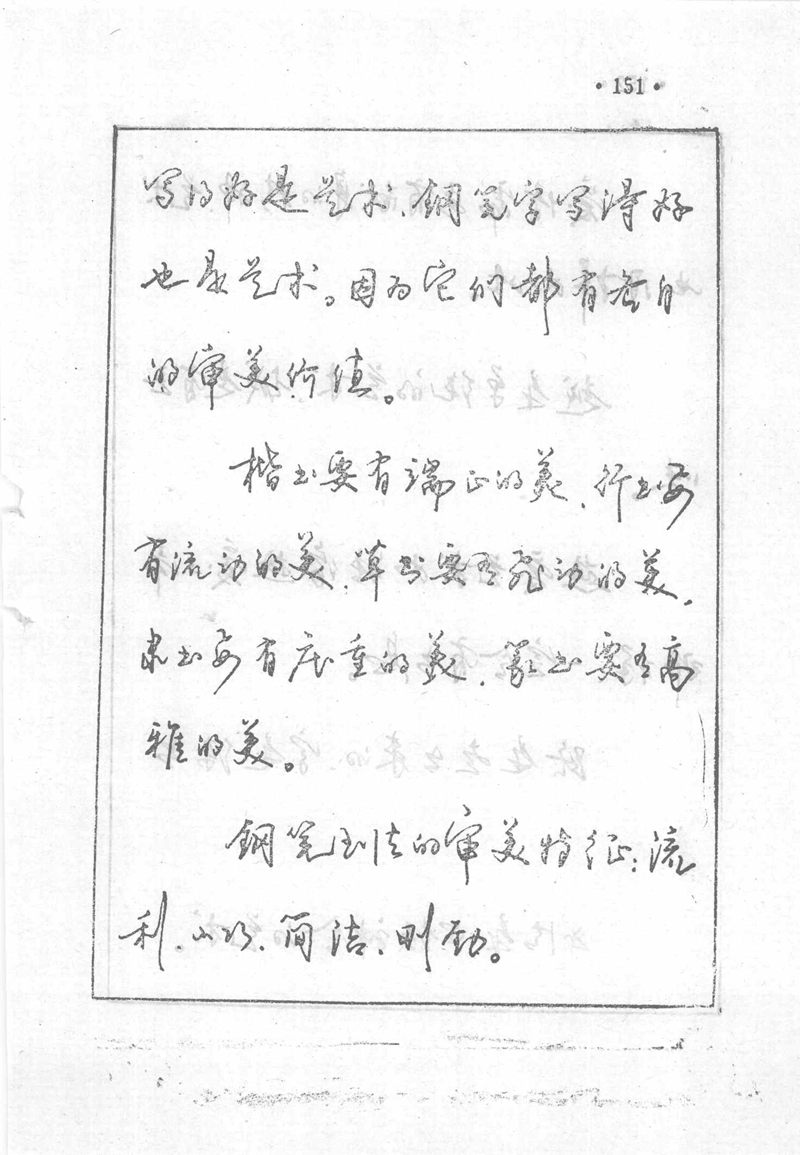 ·151·
写得好是艺术、钢笔字写得好
也是艺术。因为它们都有各自
的审美价值。
楷书要有端正的美、行书要
有流动的美、草书要有飞动的美、
隶书要有庄重的美、篆书要有高
雅的美。
钢笔书法的审美特征：流
利、小巧、简洁、刚劲。